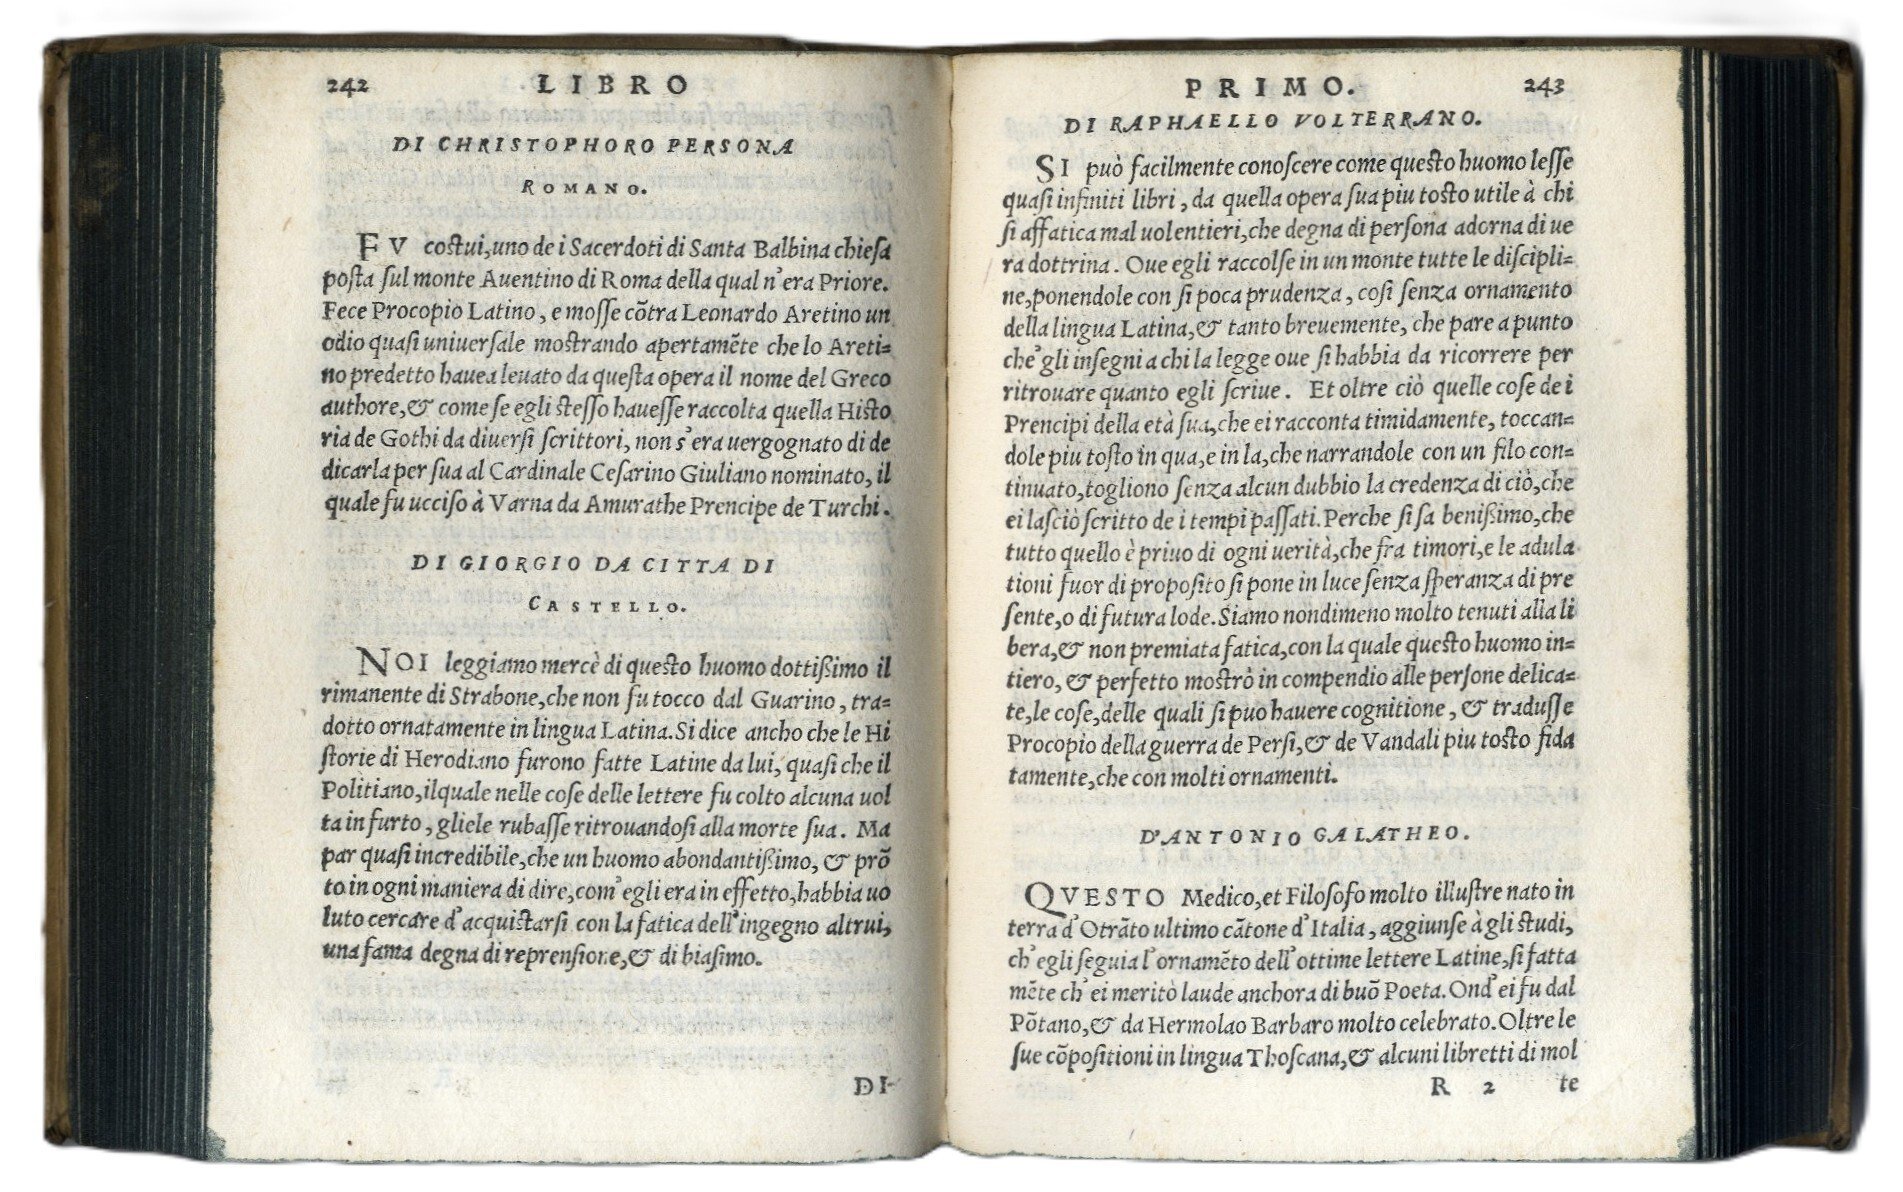 242 LIBRO
DI CHRISTOPHORO PERSONA
ROMANO.
FV costui, uno de i Sacerdoti di Santa Balbina chiesa
posta sul monte Auentino di Roma della qual n'era Priore.
Fece Procopio Latino, e mosse cõtra Leonardo Aretino un
odio quasi uniuersale mostrando apertamẽte che lo Areti=
no predetto hauea leuato da questa opera il nome del Greco
authore, & come se egli stesso hauesse raccolta quella Histo
ria de Gothi da diuersi scrittori, non s'era uergognato di de
dicarla per sua al Cardinale Cesarino Giuliano nominato, il
quale fu ucciso à Varna da Amurathe Prencipe de Turchi.
DI GIORGIO DA CITTA DI
CASTELLO.
NOI leggiamo mercè di questo huomo dottißimo il
rimanente di Strabone, che non fu tocco dal Guarino, tra=
dotto ornatamente in lingua Latina. Si dice ancho che le Hi
storie di Herodiano furono fatte Latine da lui, quasi che il
Politiano, ilquale nelle cose delle lettere fu colto alcuna uol
ta in furto, gliele rubasse ritrouandosi alla morte sua. Ma
par quasi incredibile, che un huomo abondantißimo, & prõ
to in ogni maniera di dire, com' egli era in effetto, habbia uo
luto cercare d'acquistarsi con la fatica dell'ingegno altrui,
una fama degna di reprensione, & di biasimo.
DI
PRIMO. 243
DI RAPHAELLO VOLTERRANO.
SI può facilmente conoscere come questo huomo lesse
quasi infiniti libri, da quella opera sua piu tosto utile à chi
si affatica mal uolentieri, che degna di persona adorna di ue
ra dottrina. Oue egli raccolse in un monte tutte le discipli=
ne, ponendole con si poca prudenza, cosi senza ornamento
della lingua Latina, & tanto breuemente, che pare a punto
che'gli insegni a chi la legge oue si habbia da ricorrere per
ritrouare quanto egli scriue. Et oltre ciò quelle cose de i
Prencipi della età sua, che ei racconta timidamente, toccan=
dole piu tosto in qua, e in la, che narrandole con un filo con=
tinuato, togliono senza alcun dubbio la credenza di ciò, che
ei lasciò scritto de i tempi passati. Perche si sa benißimo, che
tutto quello è priuo di ogni uerità, che fra timori, e le adula
tioni fuor di proposito si pone in luce senza speranza di pre
sente, o di futura lode. Siamo nondimeno molto tenuti alla li
bera, & non premiata fatica, con la quale questo huomo in=
tiero, & perfetto mostrò in compendio alle persone delica=
te, le cose, delle quali si puo hauere cognitione, & tradusse
Procopio della guerra de Persi, & de Vandali piu tosto fida
tamente, che con molti ornamenti.
D'ANTONIO GALATHEO.
QVESTO Medico, et Filosofo molto illustre nato in
terra d'Otrãto ultimo cãtone d'Italia, aggiunse à gli studi,
ch'egli seguia l'ornamẽto dell'ottime lettere Latine, si fatta
mẽte ch'ei meritò laude anchora di buõ Poeta. Ond'ei fu dal
Põtano, & da Hermolao Barbaro molto celebrato. Oltre le
sue cõpositioni in lingua Thoscana, & alcuni libretti di mol
R 2 te